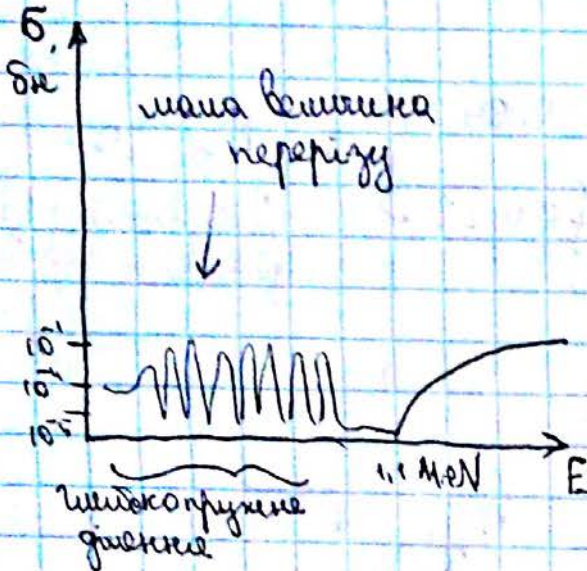 σ,
бн
мала величина
перерізу
10⁻¹
10⁻⁵
1,1 МеV
E
глибокопружне
ділення